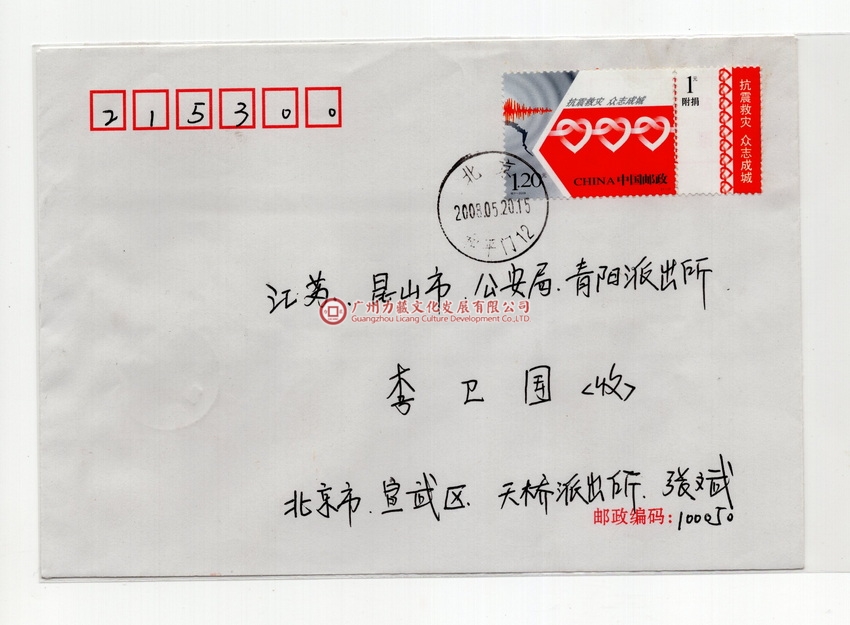 215300
抗震救灾 众志成城
1.20
CHINA 中国邮政
1元
附捐
抗震救灾 众志成城
北京
2008.05.20.15
和平门12
江苏、昆山市.公安局.青阳派出所
广州力藏文化发展有限公司
Guangzhou Licang Culture Development Co.,LTD.
李卫国<收>
北京市.宣武区.天桥派出所.张文武
邮政编码：100050